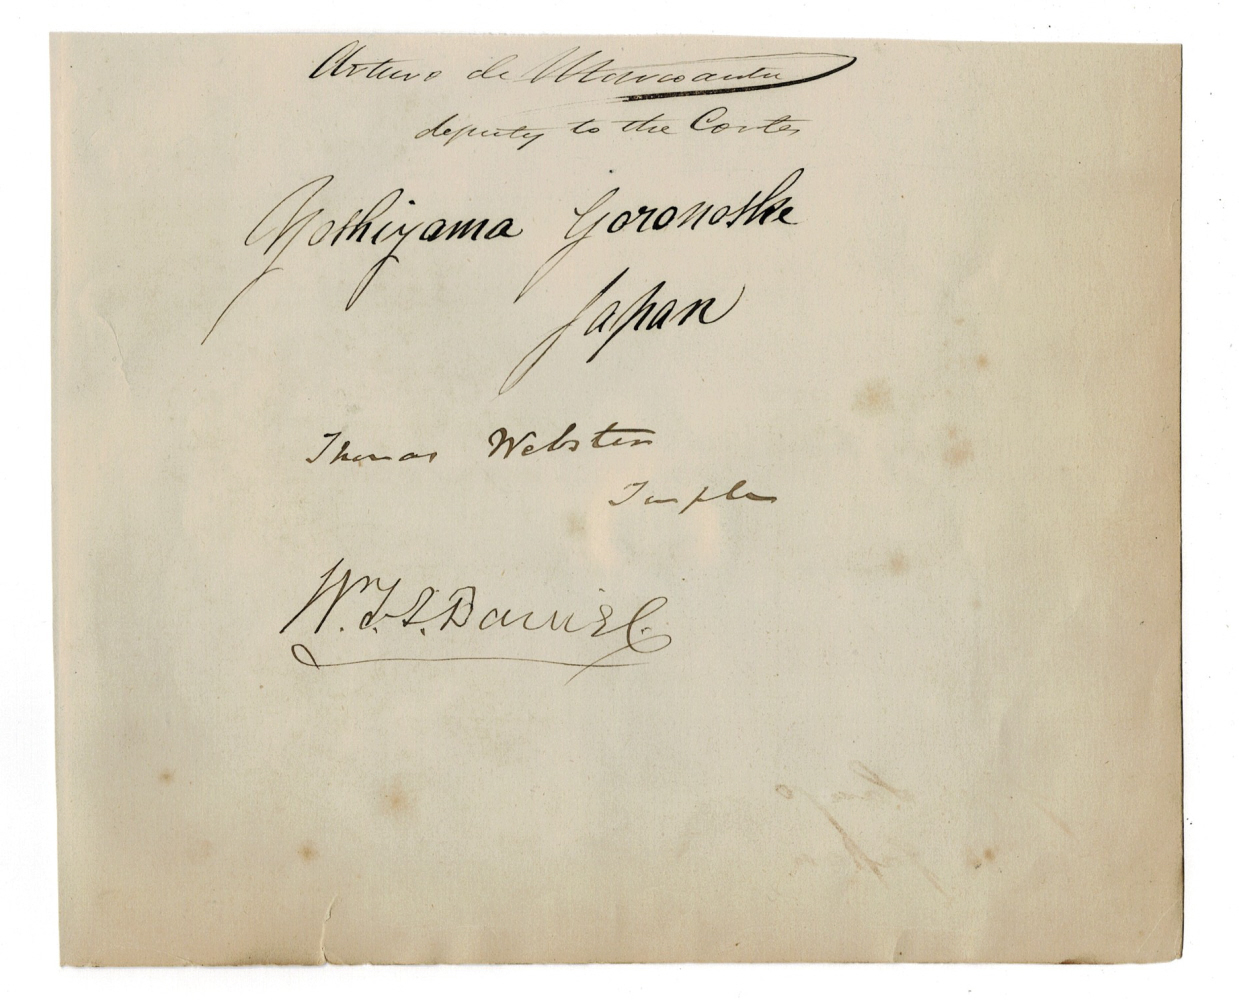 Arturo de Marcoartu
deputy to the Cortes
Yoshiyama Goronoske
Japan
Thomas Webster
Temple
W.T.S. Daniel.